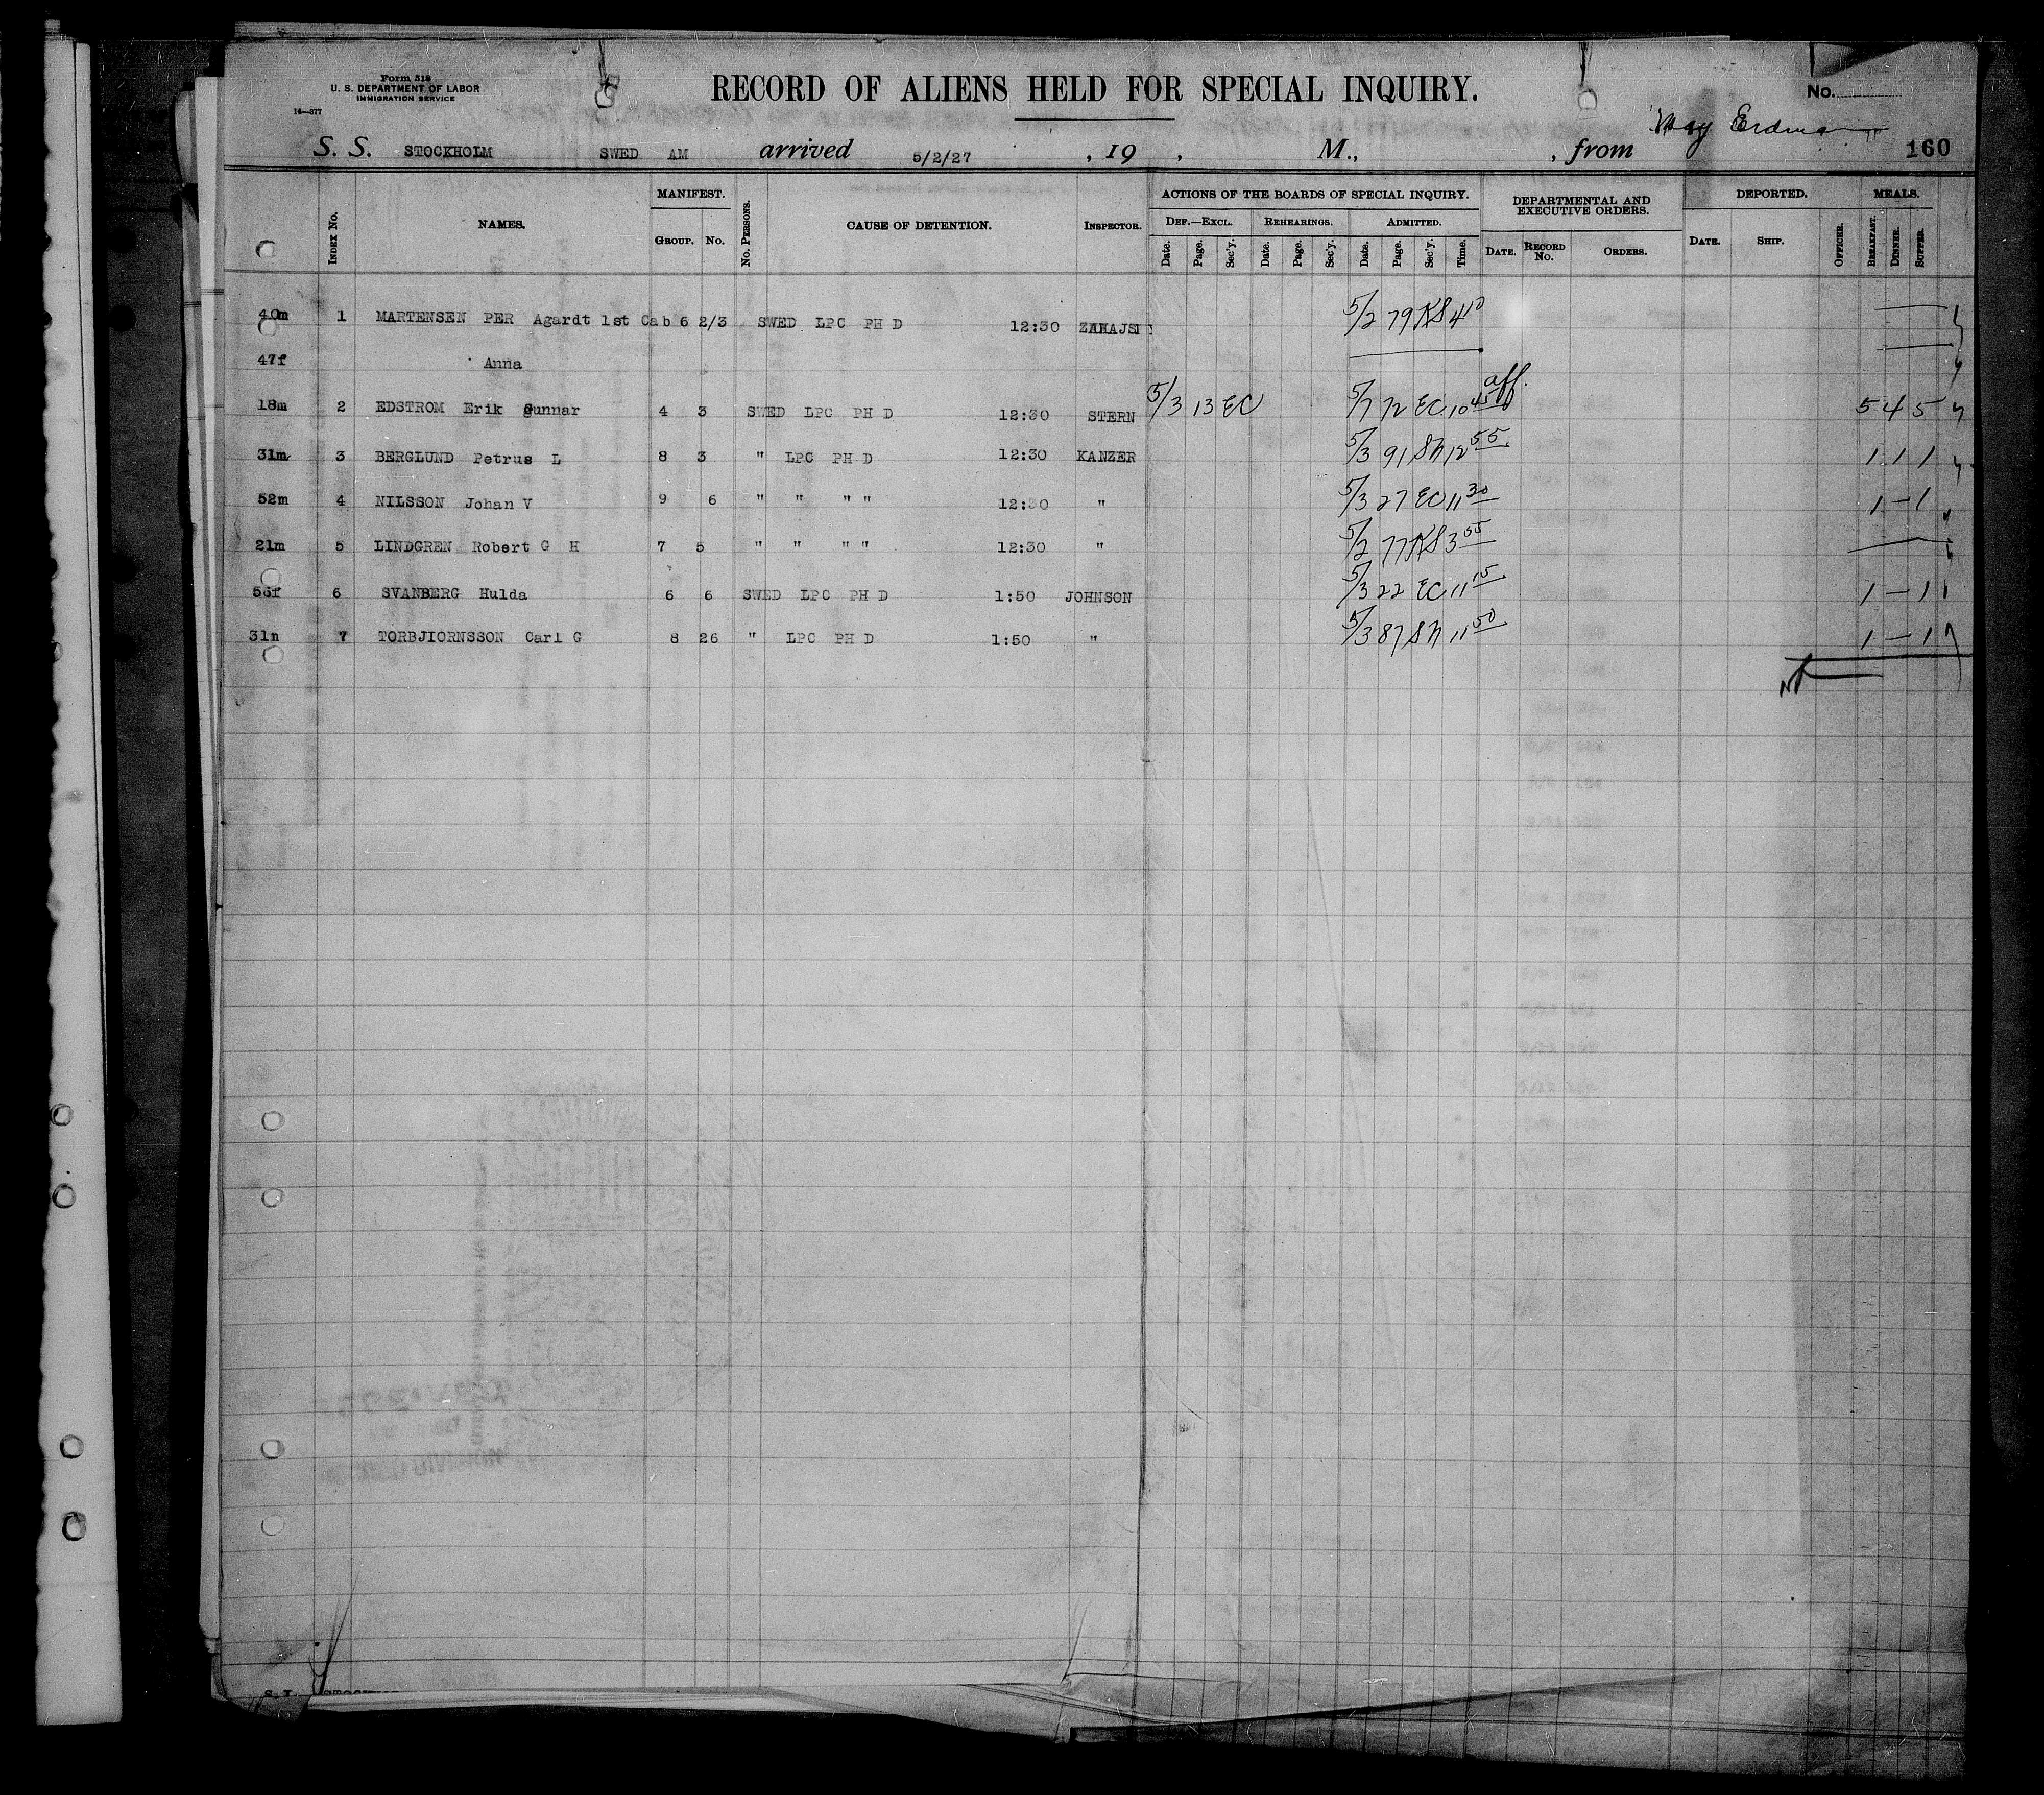 Form 518
U. S. DEPARTMENT OF LABOR
IMMIGRATION SERVICE
14—377
RECORD OF ALIENS HELD FOR SPECIAL INQUIRY.
No.
May Erdman
S. S. STOCKHOLM SWED AM arrived 5/2/27 , 19 , M., , from 160
INDEX No. NAMES. MANIFEST. GROUP. No. No. PERSONS. CAUSE OF DETENTION. INSPECTOR. ACTIONS OF THE BOARDS OF SPECIAL INQUIRY. DEF.—EXCL. Date. Page. Sec'y. REHEARINGS. Date. Page. Sec'y. ADMITTED. Date. Page. Sec'y. Time. DEPARTMENTAL AND EXECUTIVE ORDERS. DATE. RECORD No. ORDERS. DEPORTED. DATE. SHIP. OFFICER. MEALS. BREAKFAST. DINNER. SUPPER.
40m 1 MARTENSEN PER Agardt 1st Cab 6 2/3 SWED LPC PH D 12:30 5/2 79 KS 4 10
47f Anna
18m 2 EDSTROM Erik Gunnar 4 3 SWED LPC PH D 12:30 STERN 5/3 13 EC 5/7 72 EC 10 45 aff. 5 4 5
31m 3 BERGLUND Petrus L 8 3 " LPC PH D 12:30 KANZER 5/3 91 SN 12 55 1 1 1
52m 4 NILSSON Johan V 9 6 " " " " 12:30 " 5/3 27 EC 11 30 1 — 1
21m 5 LINDGREN Robert G H 7 5 " " " " 12:30 " 5/2 77 KS 3 55
56f 6 SVANBERG Hulda 6 6 SWED LPC PH D 1:50 JOHNSON 5/3 22 EC 11 15 1 — 1
31n 7 TORBJIORNSSON Carl G 8 26 " LPC PH D 1:50 " 5/3 87 SN 11 50 1 — 1